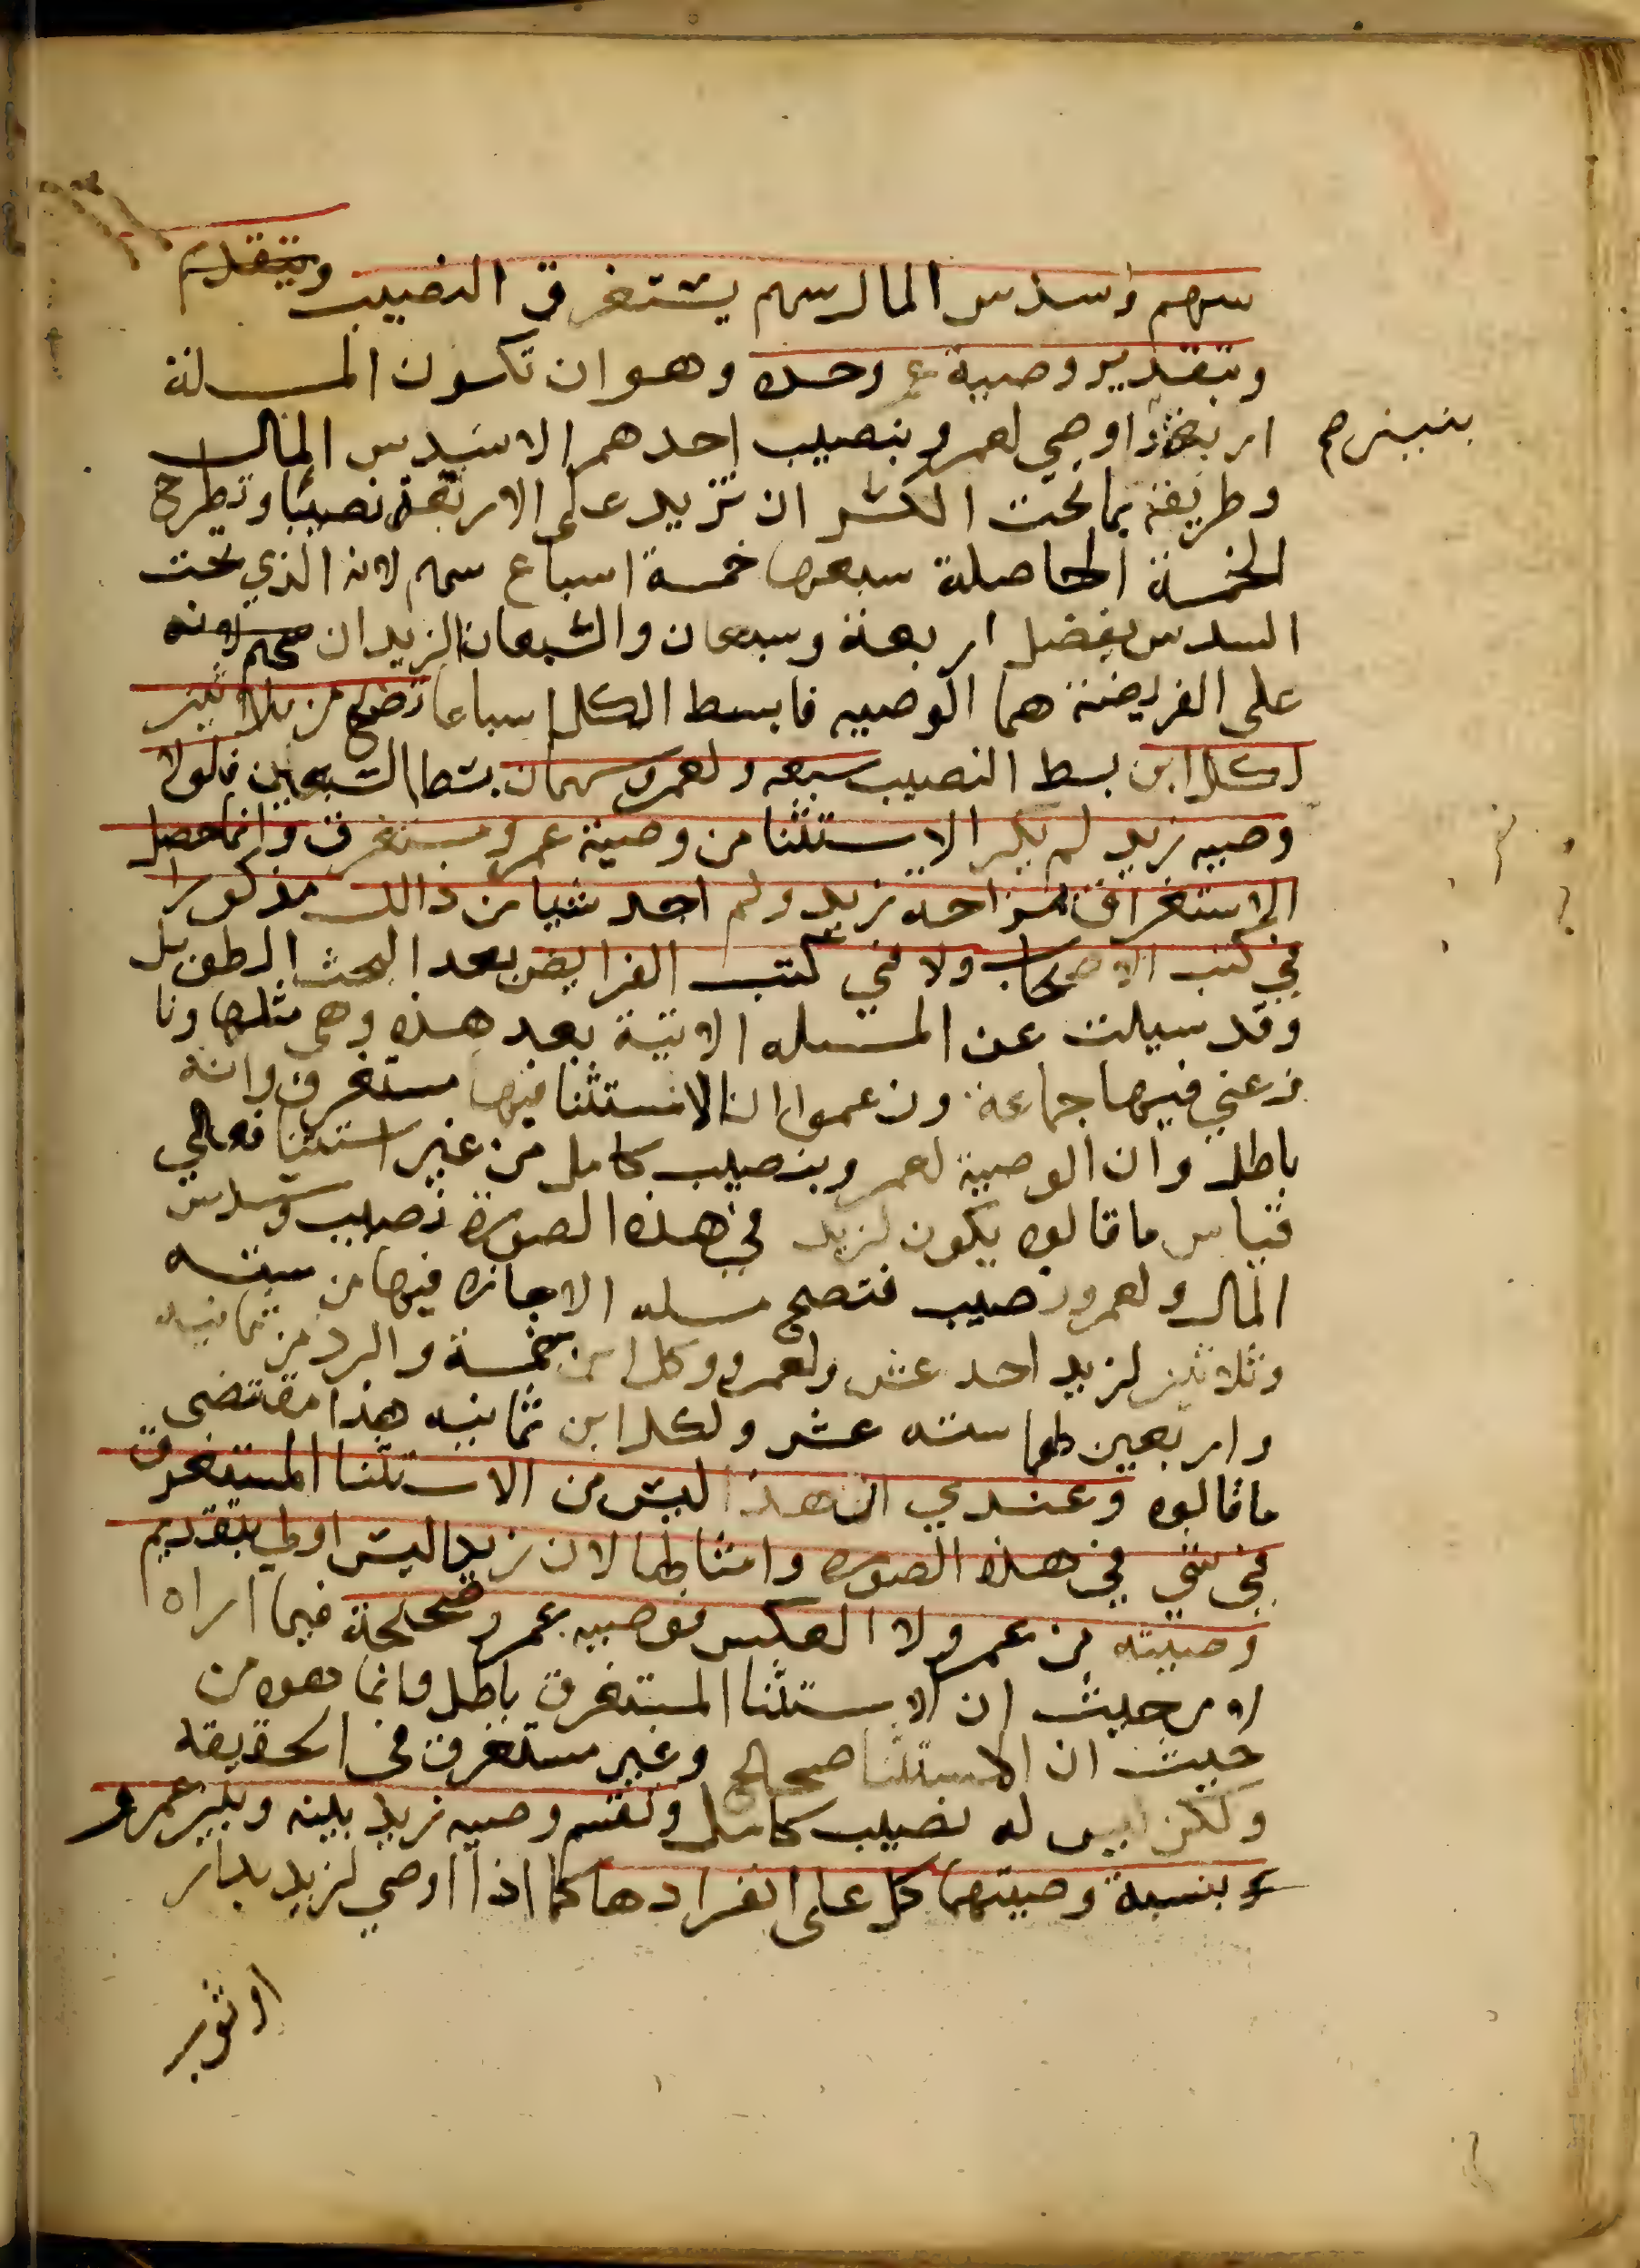 سهم وسدس المال سهم يستغرق النصيب وبتقدم
وبتقدير وصية ع وحده وهو ان تكون المسلة
اربعة اوصي لعمرو بنصيب احدهم الا سدس المال
بنين صح
وطريقة ما تحت الكسر ان تزيد على الاربعة نصيبا وتطرح
الخمسة الحاصلة سبعها خمسة اسباع سهم لانه الذي تحت
السدس يفضل اربعة وسبعان والسبعان الزيدان لانه
على الفريضة هما الوصيه فابسط الكل اسباعا تصح من ثلاثين
لكل ابن بسط النصيب سبعه ولعمرو سهمان بسط السبعين فلولا
وصيه زيد لم يكن الاستثنا من وصية عمرو مستغرق وانما حصل
الاستغراق لمزاحة زيد ولم اجد شيا من ذالك مذكورا
في كتب الاصحاب ولا في كتب الفرايض بعد البحث الطويل
وقد سيلت عن المسله الاتية بعد هذه وهي مثلها ونا
زعني فيها جماعة وزعموا ان الاستثنا فيها مستغرق وانه
باطل وان الوصية لعمرو بنصيب كامل من غير استثنا فعلي
قياس ما قالوه يكون لزيد في هذه الصورة نصيب وسدس
المال ولعمرو نصيب فتصح مسله الاجازه فيها من سته
وثلاثين لزيد احد عشر ولعمرو وكل ابن خمسة والرد من ثمانيه
واربعين لهما سته عشر ولكل ابن ثمانيه هذا مقتضى
ما قالوه وعندي ان هذا ليس من الاستثنا المستغرق
في شي في هذه الصوره وامثالها لان زيدا ليس اولي بتقديم
وصيته من عمرو ولا العكس فوصيه عمرو صحيحة فيما اراه
لا من حيث ان الاستثنا المستغرق باطل وانما هو من
حيث ان الاستثنا صحيح وغير مستغرق في الحقيقه
ولكن ليس له نصيب كامل وتقسم وصيه زيد بينه وبين عمرو
بنسبة وصيتهما كل على انفرادها كما اذا اوصي لزيد بدار
او ثوب